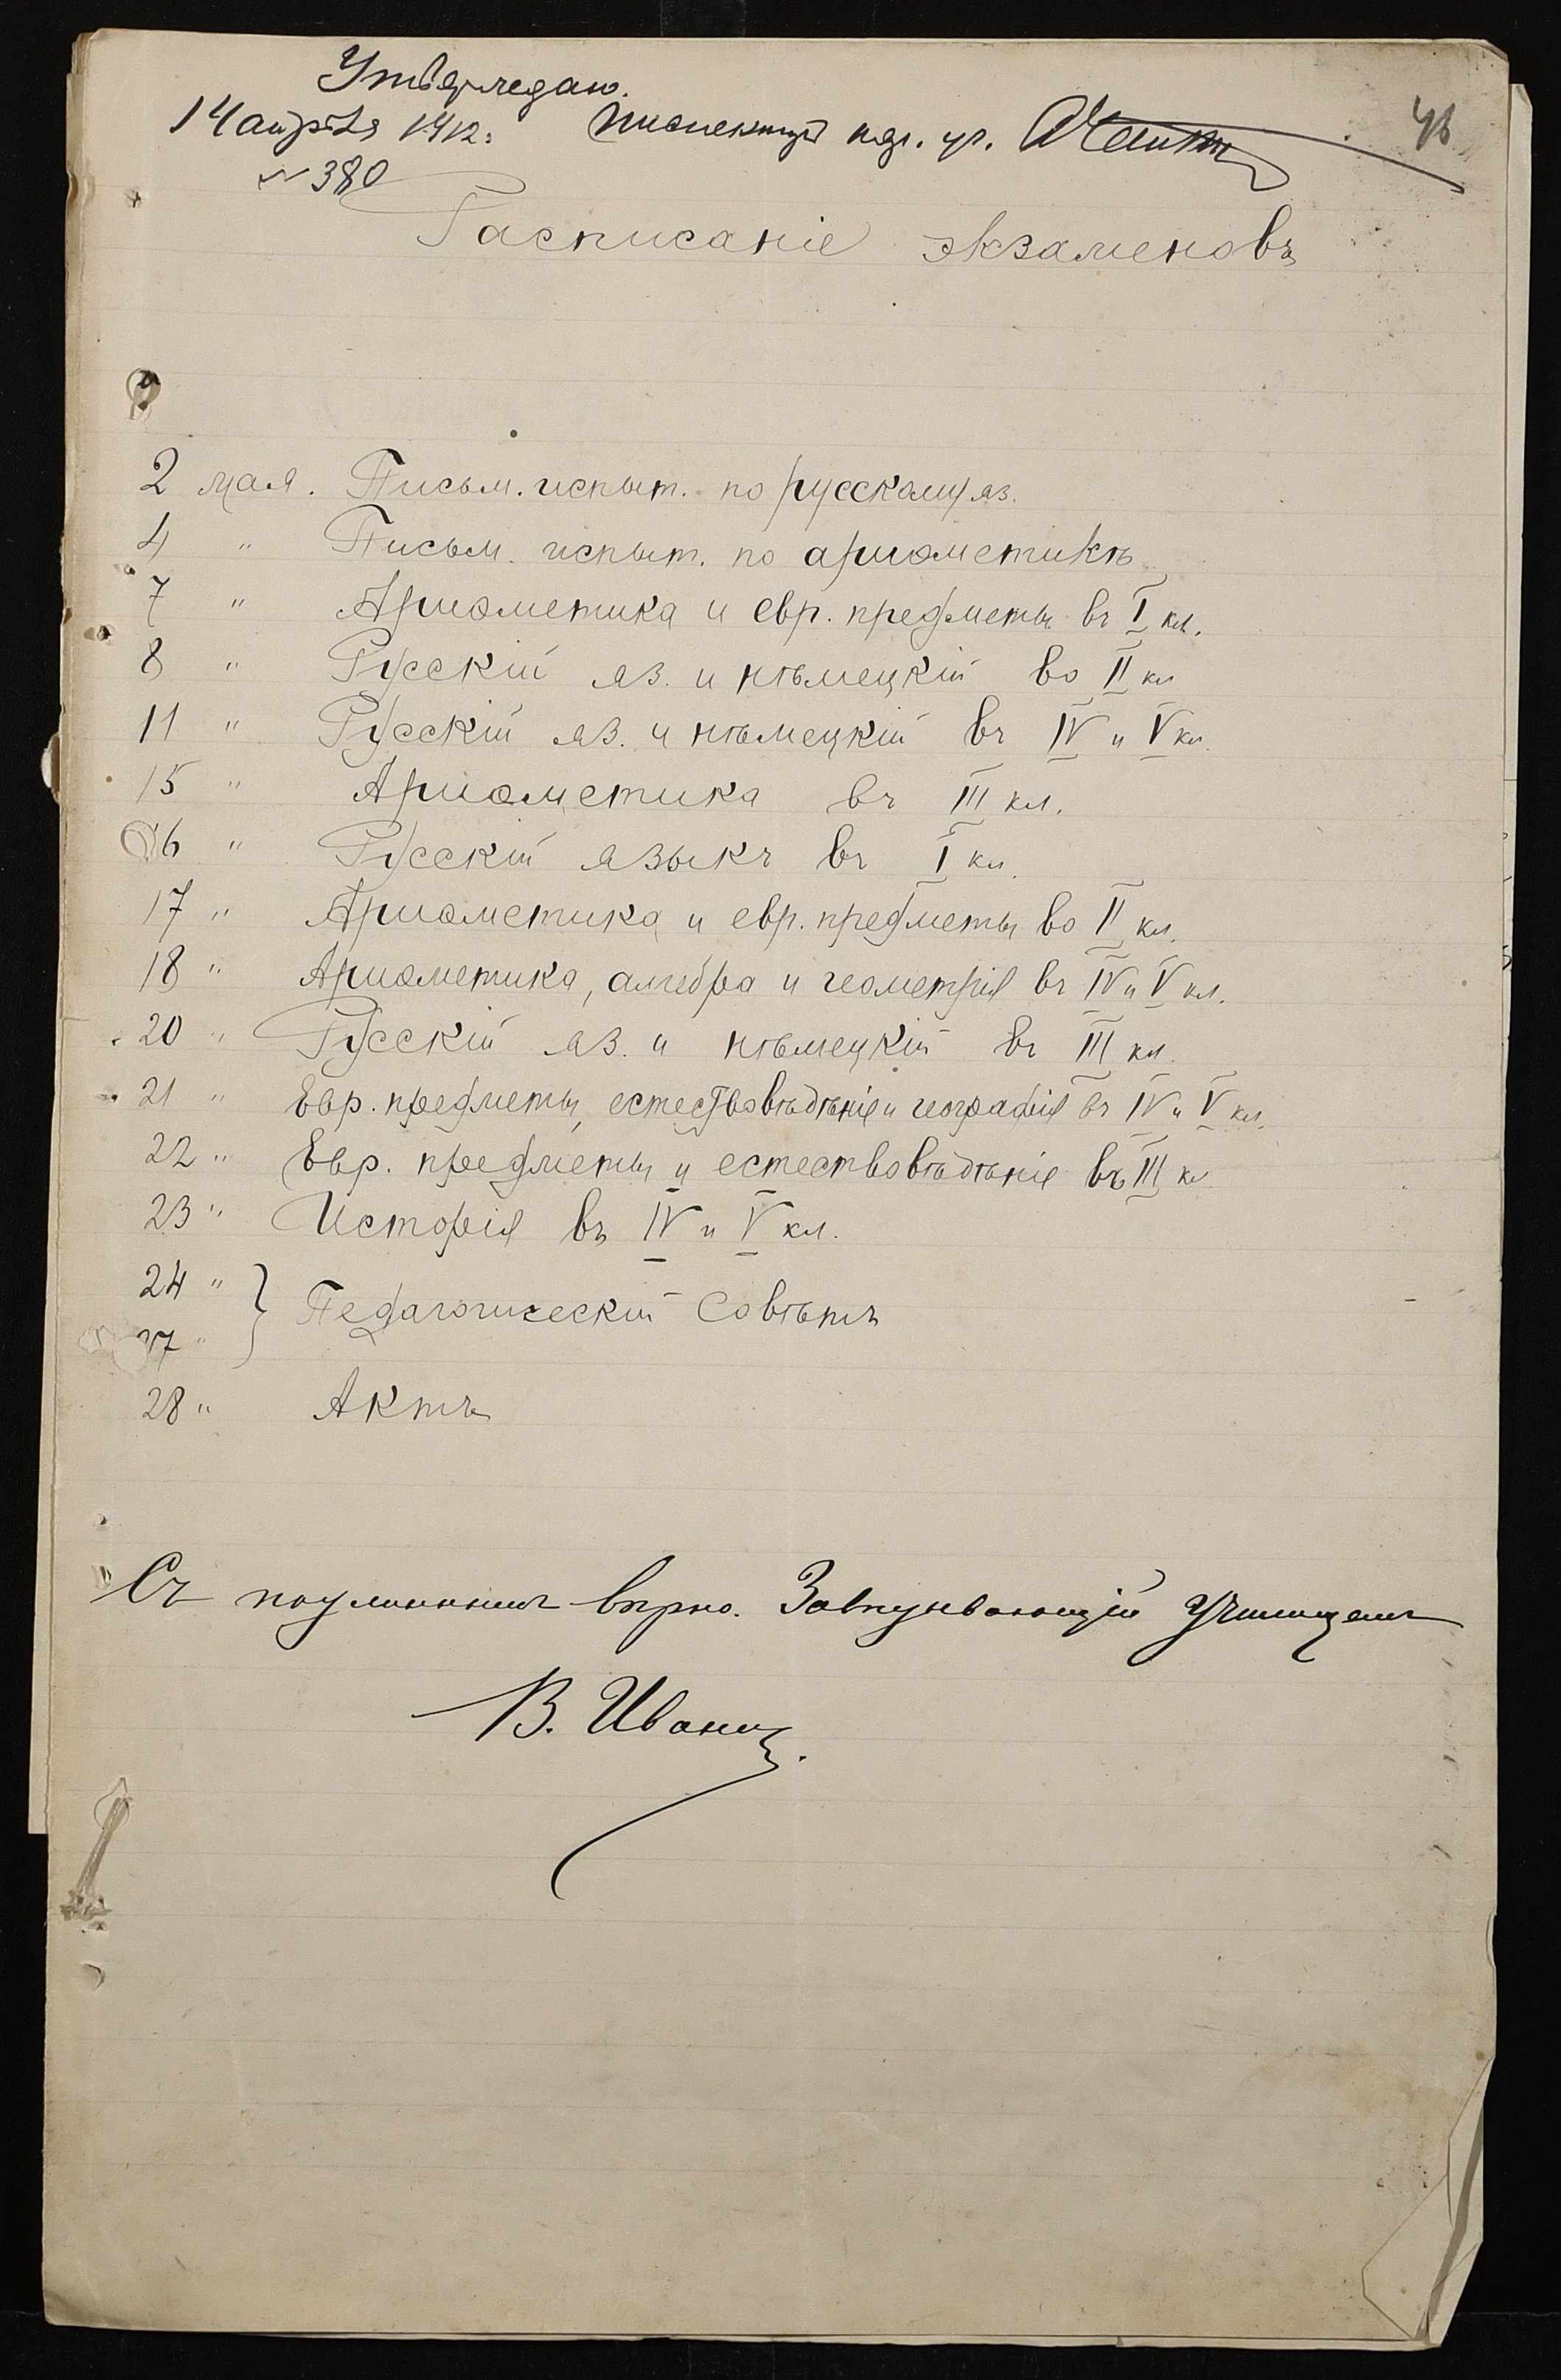 Утверждаю.
14 апрѣля 1912. Инспекторъ нар. уч.
46
№ 380
Расписаніе экзаменовъ
2 мая. Письм. испыт. по русскому яз.
4 " Письм. испыт. по ариѳметикѣ
7 " Ариѳметика и евр. предметы въ I кл.
8 " Русскій яз. и нѣмецкій во II кл
11 " Русскій яз. и нѣмецкій въ IV и V кл.
15 " Ариѳметика въ III кл.
16 " Русскій языкъ въ I кл.
17 " Ариѳметика и евр. предметы во II кл.
18 " Ариѳметика, алгебра и геометрія въ IV и V кл.
20 " Русскій яз. и нѣмецкій въ III кл.
21 " Евр. предметы, естествовѣдѣніе и географія въ IV и V кл.
22 " Евр. предметы и естествовѣдѣніе въ III кл
23 " Исторія въ IV и V кл.
24 " } Педагогическій Совѣтъ
27 "
28 " Актъ
Съ подлиннымъ вѣрно. Завѣдывающій училищемъ
В. Иваниц